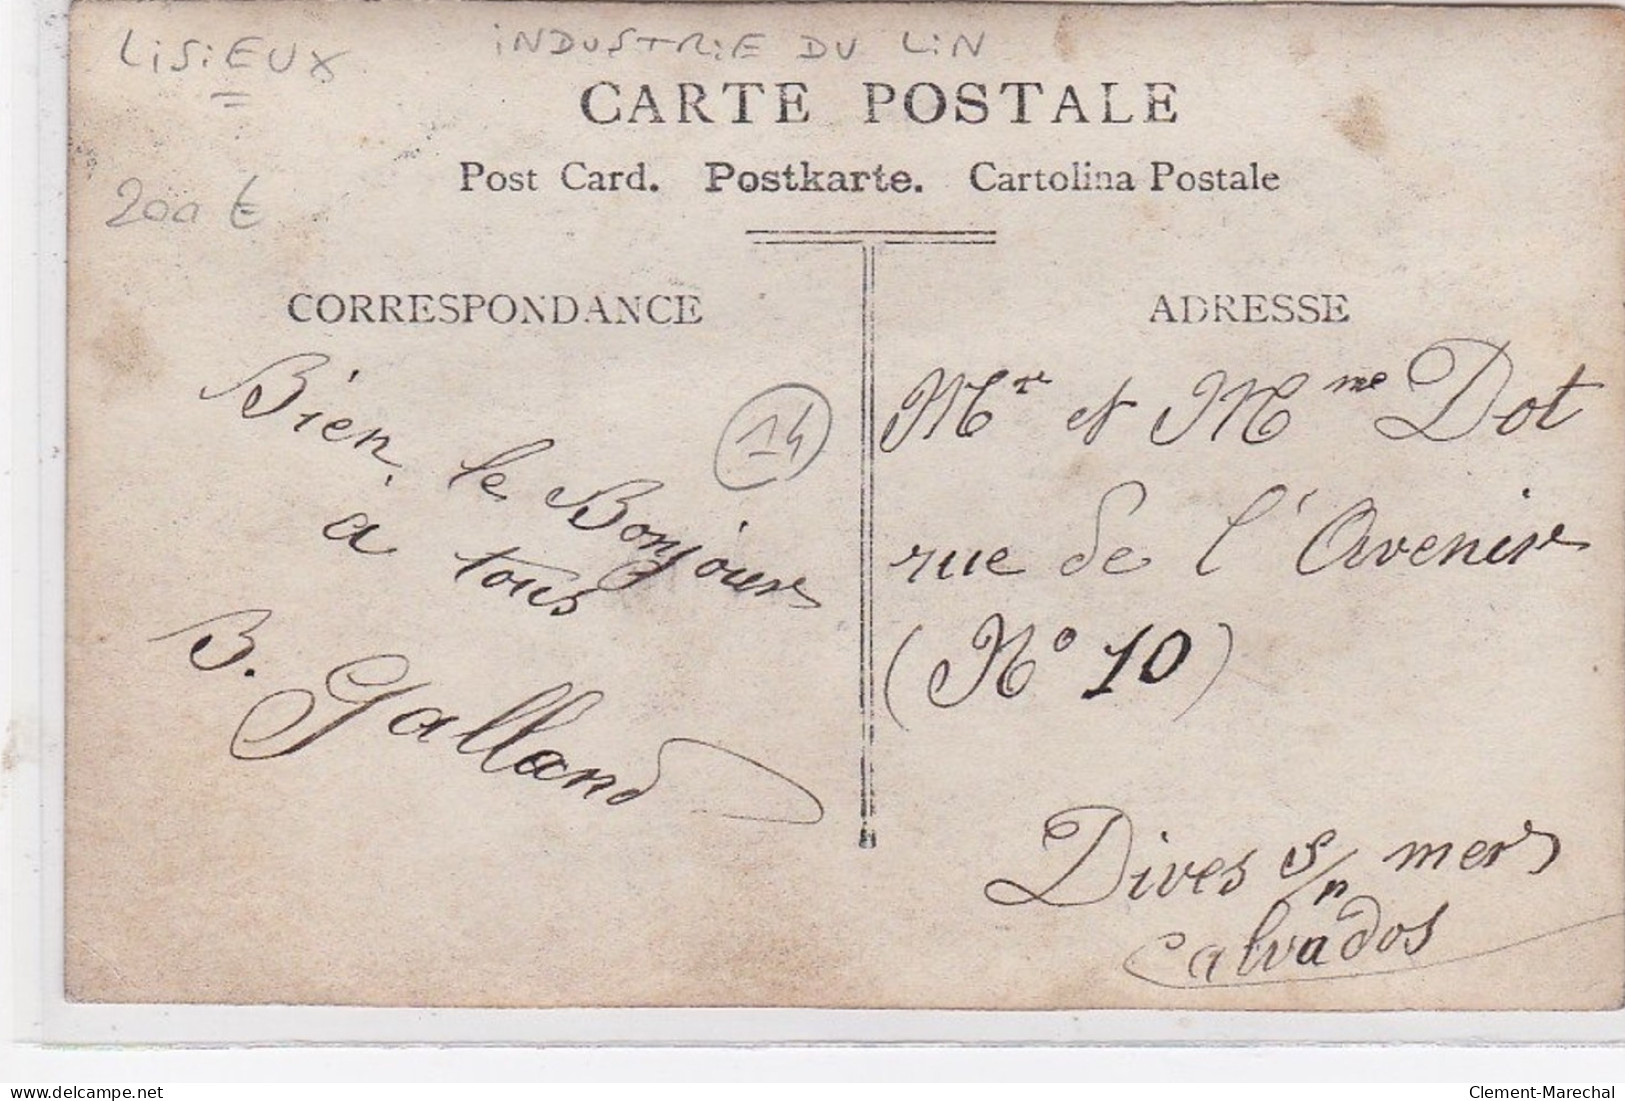 LiSiEUX
iNDUSTRiE DU LiN
CARTE POSTALE
Post Card. Postkarte. Cartolina Postale
200 €
CORRESPONDANCE
ADRESSE
Bien le Bonjour
à tous
B. Galland
14
Mr et Mme Dot
rue de l'Avenir
(No 10)
Dives s/ mer
Calvados
delcampe.net
Clement-Marechal